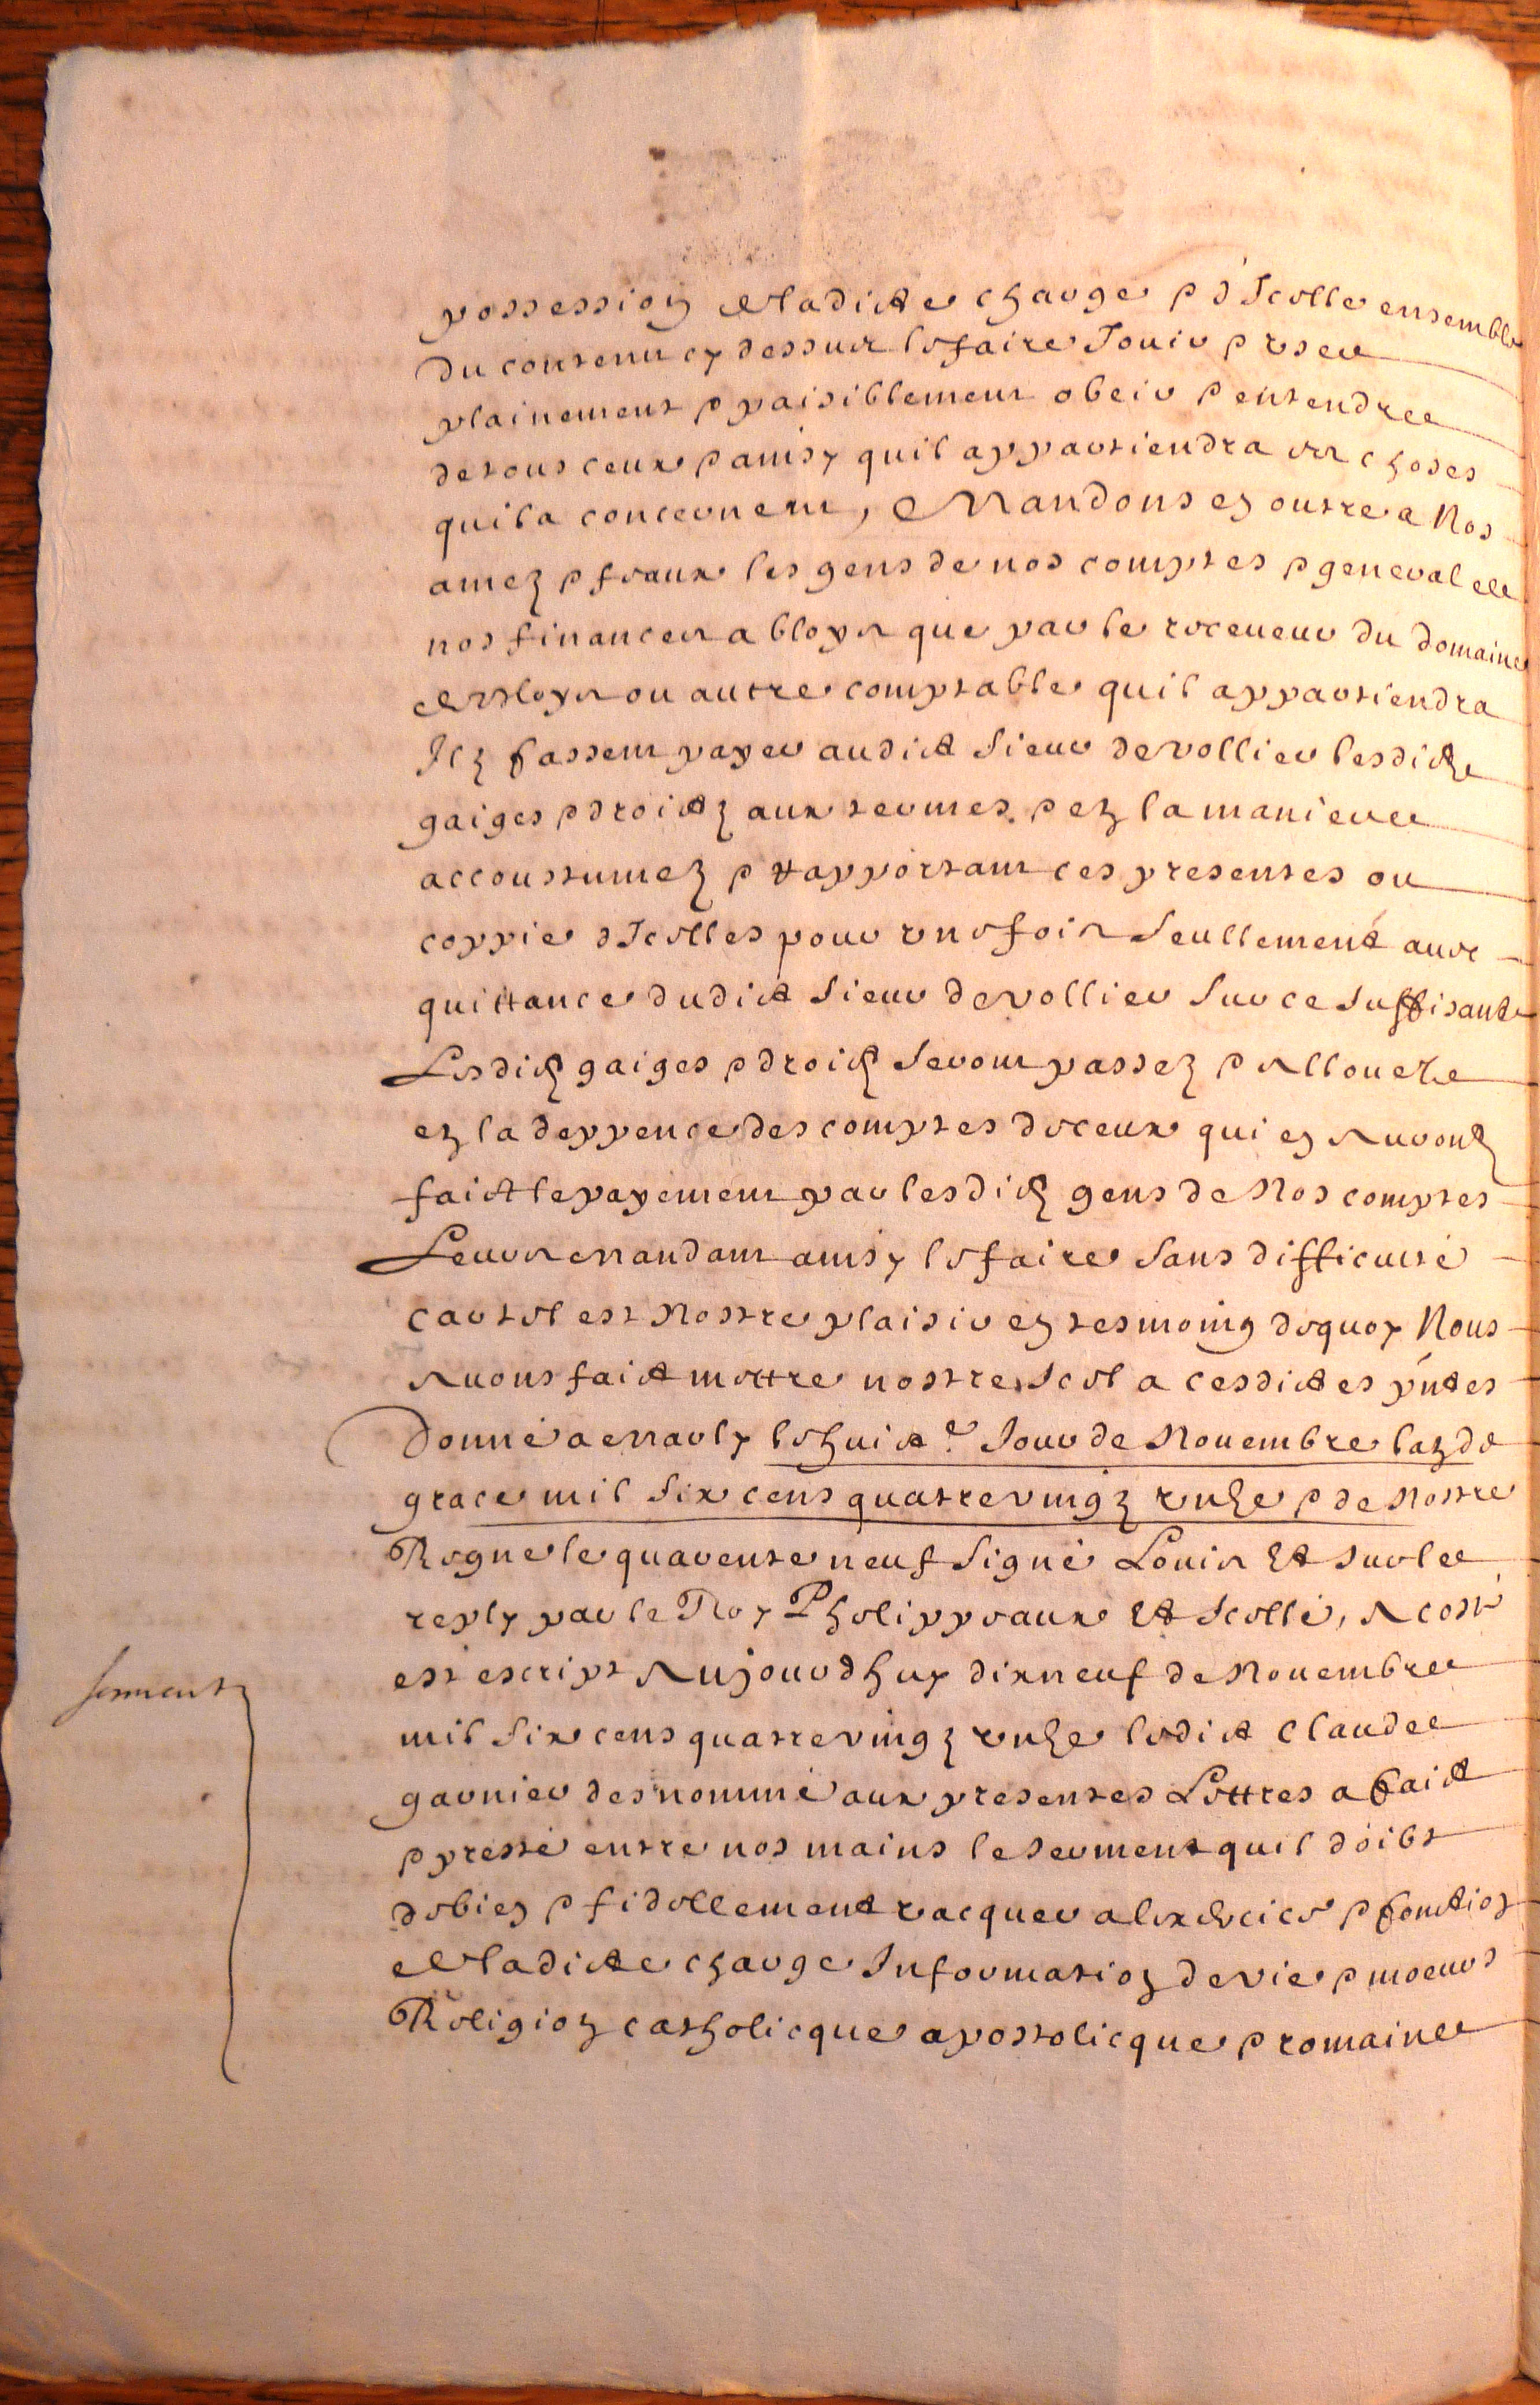 possession de ladicte charge & d'Icelle ensemble
du contenu cy dessus le faire Jouir & user
plainement & paisiblement obeir & entendre
de tous ceux & ainsy quil appartiendra es choses
qui la concernent, Mandons en outre a Nos
amez & feaux les gens de nos comptes & general de
nos finances a bloys que par le receveur du domaine
de bloys ou autre comptable quil appartiendra
Ilz fassent payer audict sieur devollier lesdictz
gaiges & droictz aux termes & en la maniere
accoustumez & rapportant ces presentes ou
coppie dIcelles pour une fois seullement avec
quittance dudict sieur devollier sur ce suffisante
Lesdictz gaiges & droictz seront passez & allouez
en la deppence des comptes de ceux qui en auront
faict le payement par lesdictz gens de Nos comptes
Leurs mandant ainsy le faire sans difficulté
car tel est Nostre plaisir en tesmoing dequoy Nous
avons faict mettre nostre scel a cesdictes pntes
Donné a Marly le huict e Jour de Novembre lan de
grace mil six cens quatrevingz unze & de Nostre
Regne le quarente neuf signé Louis Et sur le
reply par le Roy Phelippeaux Et scellé, a costé
est escript Aujourdhuy dixneuf de Novembre
mil six cens quatrevingz unze ledict Claude
garnier desnommé aux presentes Lettres a faict
& presté entre nos mains le serment quil doibt
de bien & fidellement vacquer a lexercice & fonction
de ladicte charge Information de vie & moeurs
Religion catholicque apostolicque & romaine
serment